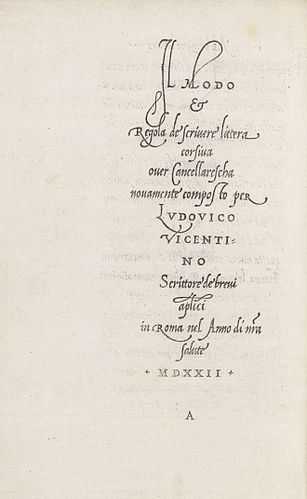 Il MODO
&
Regola de scrivere littera
corsiva
over Cancellarescha
novamente composto per
LVDOVICO
VICENTI=
NO
Scrittore de brevi
aplici
in Roma nel Anno di nr̃a
salute
+ MDXXII +
A